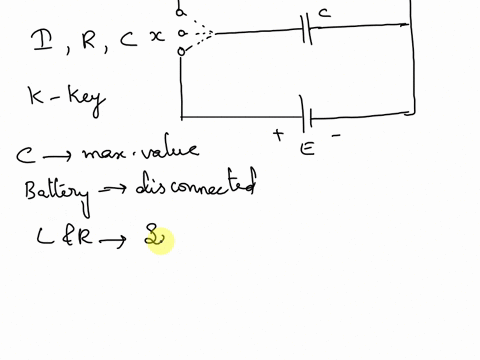 a
C
I, R, C x a
o
K - Key
+ E -
C → max. value
Battery → disconnected
L & R → &